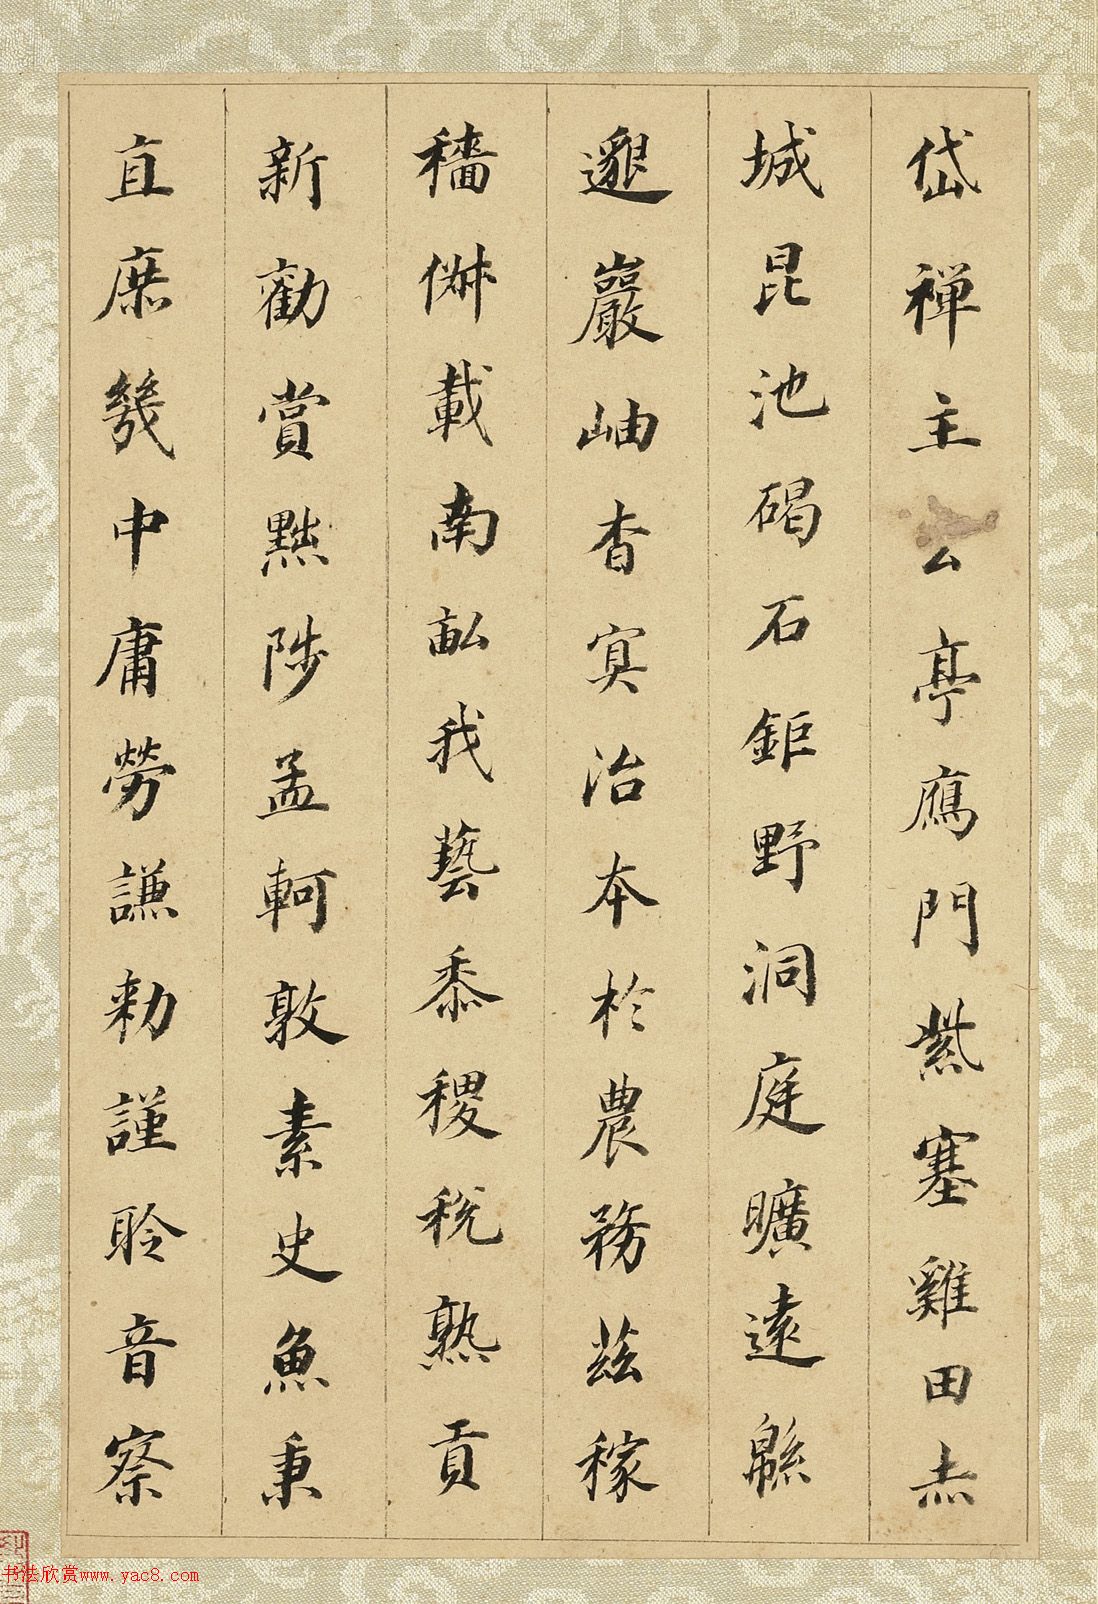 岱禪主云亭鴈門紫塞雞田赤
城昆池碣石鉅野洞庭曠遠緜
邈巖岫杳冥治本於農務茲稼
穡俶載南畝我藝黍稷稅熟貢
新勸賞黜陟孟軻敦素史魚秉
直庶幾中庸勞謙勅謹聆音察
书法欣赏www.yac8.com